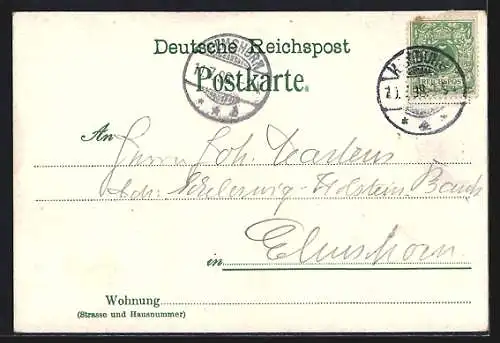 Deutsche Reichspost
Postkarte.
REICHSPOST
An
Herrn Joh. Martens
Adr. Schleswig-Holstein. Bank
in Elmshorn
Wohnung
(Strasse und Hausnummer)